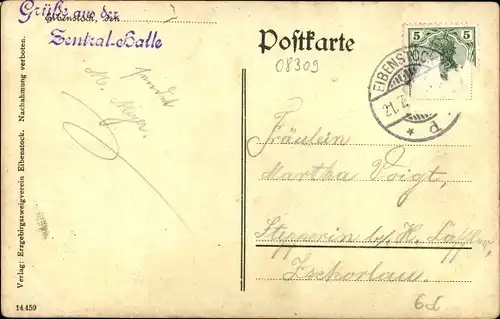 Grüße aus der
Zentral-Halle
Eibenstock,
Postkarte
08309
5 5
EIBENSTOCK
21.7.
* d
M. Meyer.
Fräulein
Martha Voigt,
Stepperin b/ H.
Zschorlau.
6d
Verlag: Erzgebirgszweigverein Eibenstock. Nachahmung verboten.
14459